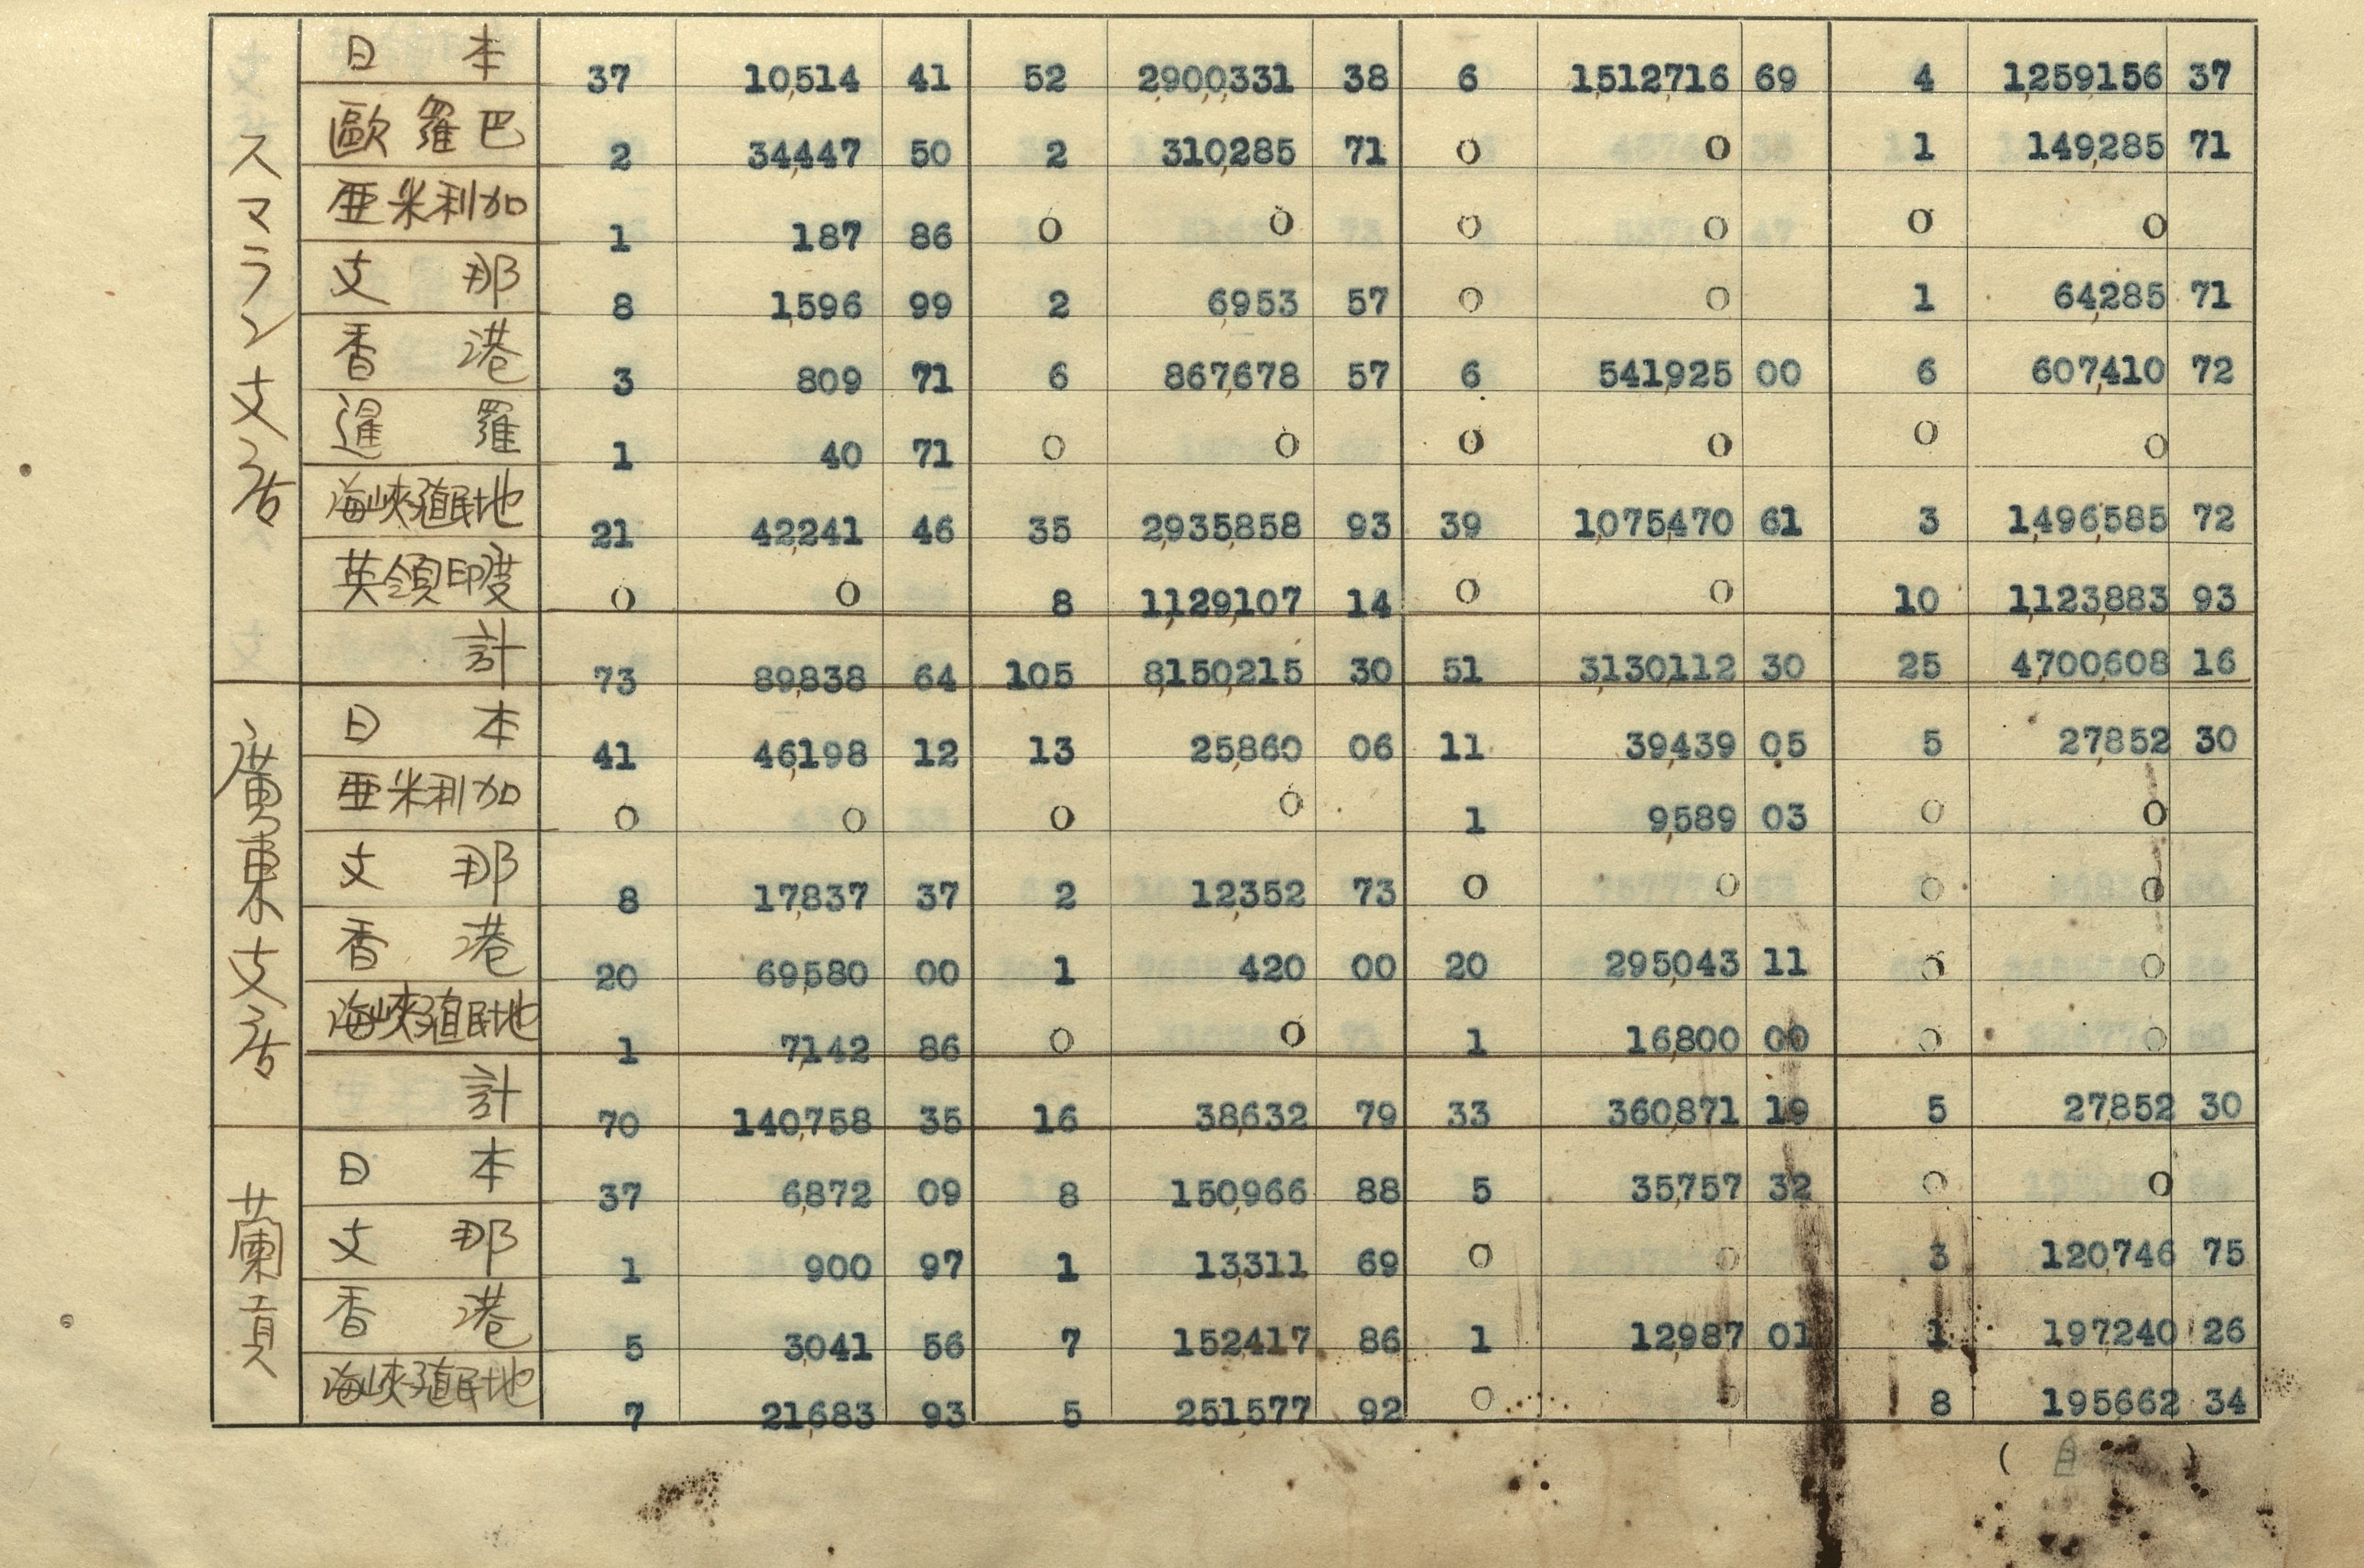 スマラン支店
日本 37 10,514 41 52 2,900,331 38 6 1,512,716 69 4 1,259,156 37
歐羅巴 2 34,447 50 2 310,285 71 0 0 1 149,285 71
亜米利加 1 187 86 0 0 0 0 0 0
支那 8 1,596 99 2 6,953 57 0 0 1 64,285 71
香港 3 809 71 6 867,678 57 6 541,925 00 6 607,410 72
暹羅 1 40 71 0 0 0 0 0 0
海峽殖民地 21 42,241 46 35 2,935,858 93 39 1,075,470 61 3 1,496,585 72
英領印度 0 0 8 1,129,107 14 0 0 10 1,123,883 93
計 73 89,838 64 105 8,150,215 30 51 3,130,112 30 25 4,700,608 16
廣東支店
日本 41 46,198 12 13 25,860 06 11 39,439 05 5 27,852 30
亜米利加 0 0 0 0 1 9,589 03 0 0
支那 8 17,837 37 2 12,352 73 0 0 0 0
香港 20 69,580 00 1 420 00 20 295,043 11 0 0
海峽殖民地 1 7,142 86 0 0 1 16,800 00 0 0
計 70 140,758 35 16 38,632 79 33 360,871 19 5 27,852 30
蘭貢
日本 37 6,872 09 8 150,966 88 5 35,757 32 0 0
支那 1 900 97 1 13,311 69 0 0 3 120,746 75
香港 5 3,041 56 7 152,417 86 1 12,987 01 1 197,240 26
海峽殖民地 7 21,683 93 5 251,577 92 0 0 8 195,662 34